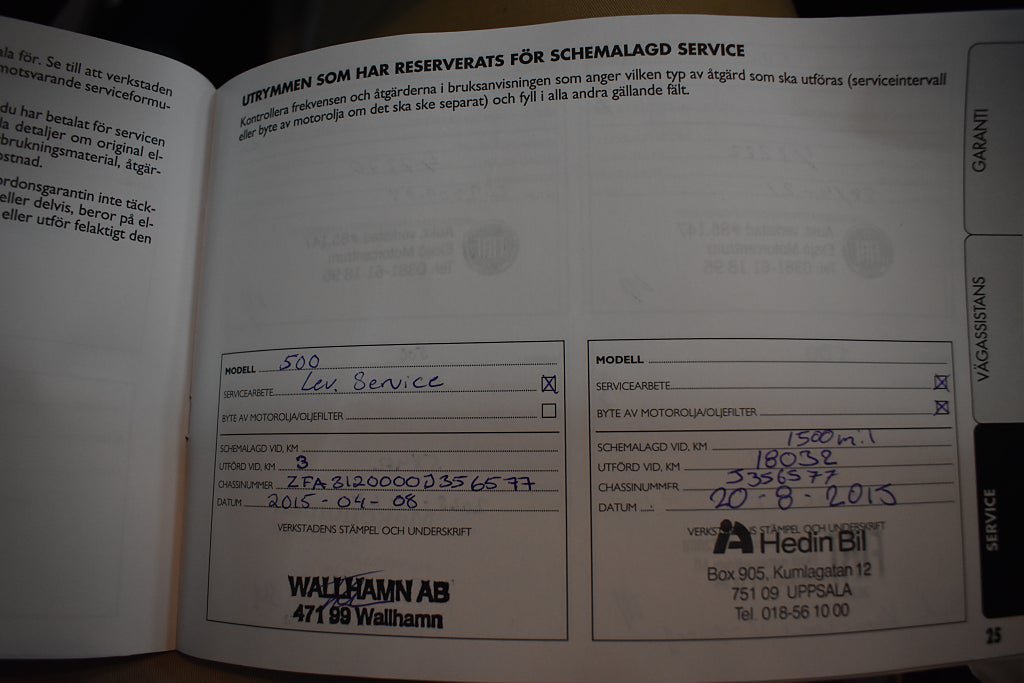 ala för. Se till att verkstaden
motsvarande serviceformu-
du har betalat för servicen
la detaljer om original el-
brukningsmaterial, åtgär-
ostnad.
ordonsgarantin inte täck-
eller delvis, beror på el-
eller utför felaktigt den
UTRYMMEN SOM HAR RESERVERATS FÖR SCHEMALAGD SERVICE
Kontrollera frekvensen och åtgärderna i bruksanvisningen som anger vilken typ av åtgärd som ska utföras (serviceintervall
eller byte av motorolja om det ska ske separat) och fyll i alla andra gällande fält.
MODELL 500
SERVICEARBETE Lev. Service
BYTE AV MOTOROLJA/OLJEFILTER
SCHEMALAGD VID, KM
UTFÖRD VID, KM 3
CHASSINUMMER ZFA3120000J356577
DATUM 2015-04-08
VERKSTADENS STÄMPEL OCH UNDERSKRIFT
WALLHAMN AB
471 99 Wallhamn
MODELL
SERVICEARBETE
BYTE AV MOTOROLJA/OLJEFILTER
SCHEMALAGD VID, KM 1500 mil
UTFÖRD VID, KM 18032
CHASSINUMMER J356577
DATUM 20-8-2015
VERKSTADENS STÄMPEL OCH UNDERSKRIFT
Hedin Bil
Box 905, Kumlagatan 12
751 09 UPPSALA
Tel. 018-56 10 00
GARANTI
VÄGASSISTANS
SERVICE
25